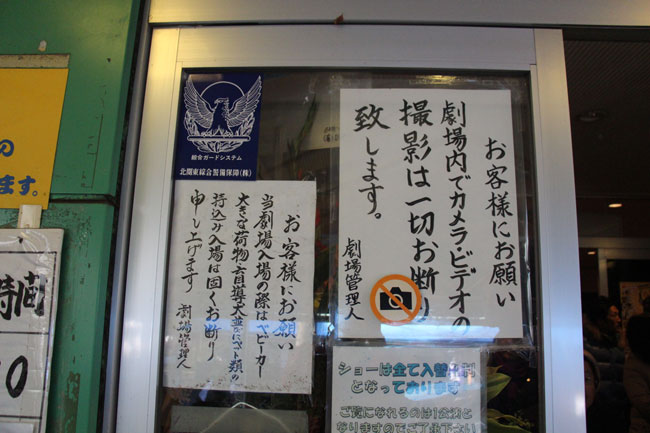 の
ます。
時間
0
総合ガードシステム
北関東綜合警備保障(株)
お客様にお願い
劇場内でカメラ・ビデオの
撮影は一切お断り
致します。
劇場管理人
お客様にお願い
当劇場入場の際はベビーカー
大きな荷物盲導犬並にペット類の
持込み入場は固くお断り
申し上げます
劇場管理人
ショーは全て入替え制
となっております
ご覧になれるのは1公演と
なりますのでご了承下さい